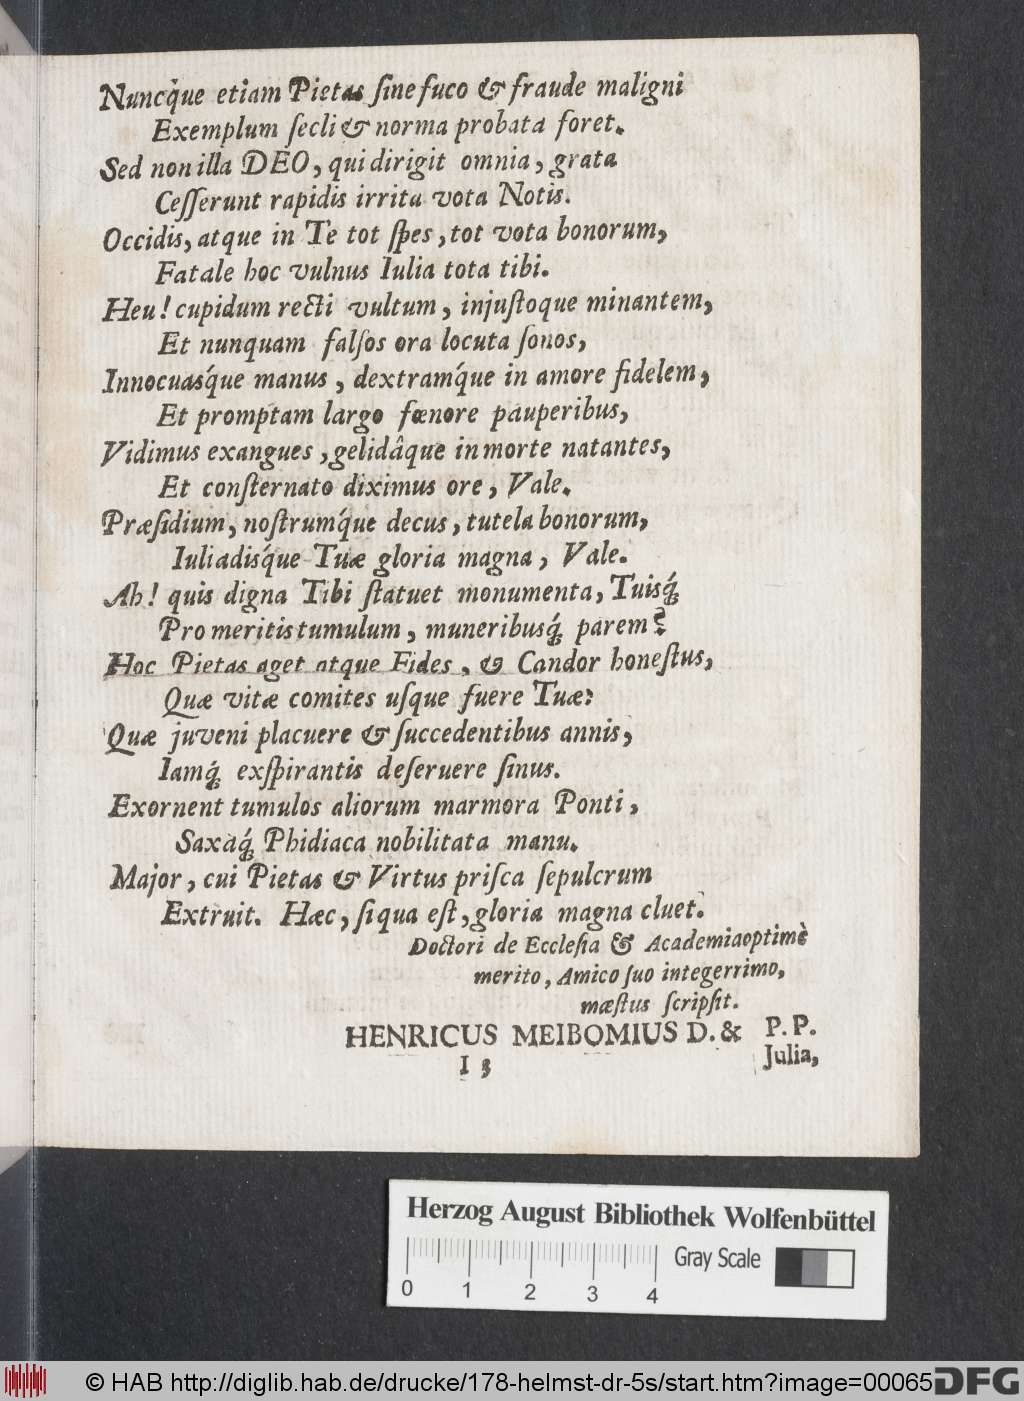 Nuncq́ue etiam Pietas ſine fuco & fraude maligni
Exemplum ſecli & norma probata foret.
Sed non illa DEO, qui dirigit omnia, grata
Ceſſerunt rapidis irrita vota Notis.
Occidis, atque in Te tot ſpes, tot vota bonorum,
Fatale hoc vulnus Iulia tota tibi.
Heu! cupidum recti vultum, injuſtoque minantem,
Et nunquam falſos ora locuta ſonos,
Innocuasq́ue manus, dextramq́ue in amore fidelem,
Et promptam largo fœnore pauperibus,
Vidimus exangues, gelidâque in morte natantes,
Et conſternato diximus ore, Vale.
Præſidium, noſtrumq́ue decus, tutela bonorum,
Iuliadisq́ue Tuæ gloria magna, Vale.
Ah! quis digna Tibi ſtatuet monumenta, Tuisq́;
Pro meritis tumulum, muneribusq́; parem?
Hoc Pietas aget atque Fides, & Candor honeſtus,
Quæ vitæ comites uſque fuere Tuæ:
Quæ juveni placuere & ſuccedentibus annis,
Iamq́; exſpirantis deſeruere ſinus.
Exornent tumulos aliorum marmora Ponti,
Saxaq́; Phidiaca nobilitata manu.
Major, cui Pietas & Virtus priſca ſepulcrum
Extruit. Hæc, ſi qua eſt, gloria magna cluet.
Doctori de Eccleſia & Academia optimè
merito, Amico ſuo integerrimo,
mæſtus ſcripſit.
HENRICUS MEIBOMIUS D. & P. P.
I 3 Julia,
Herzog August Bibliothek Wolfenbüttel
0 1 2 3 4 Gray Scale
© HAB http://diglib.hab.de/drucke/178-helmst-dr-5s/start.htm?image=00065 DFG